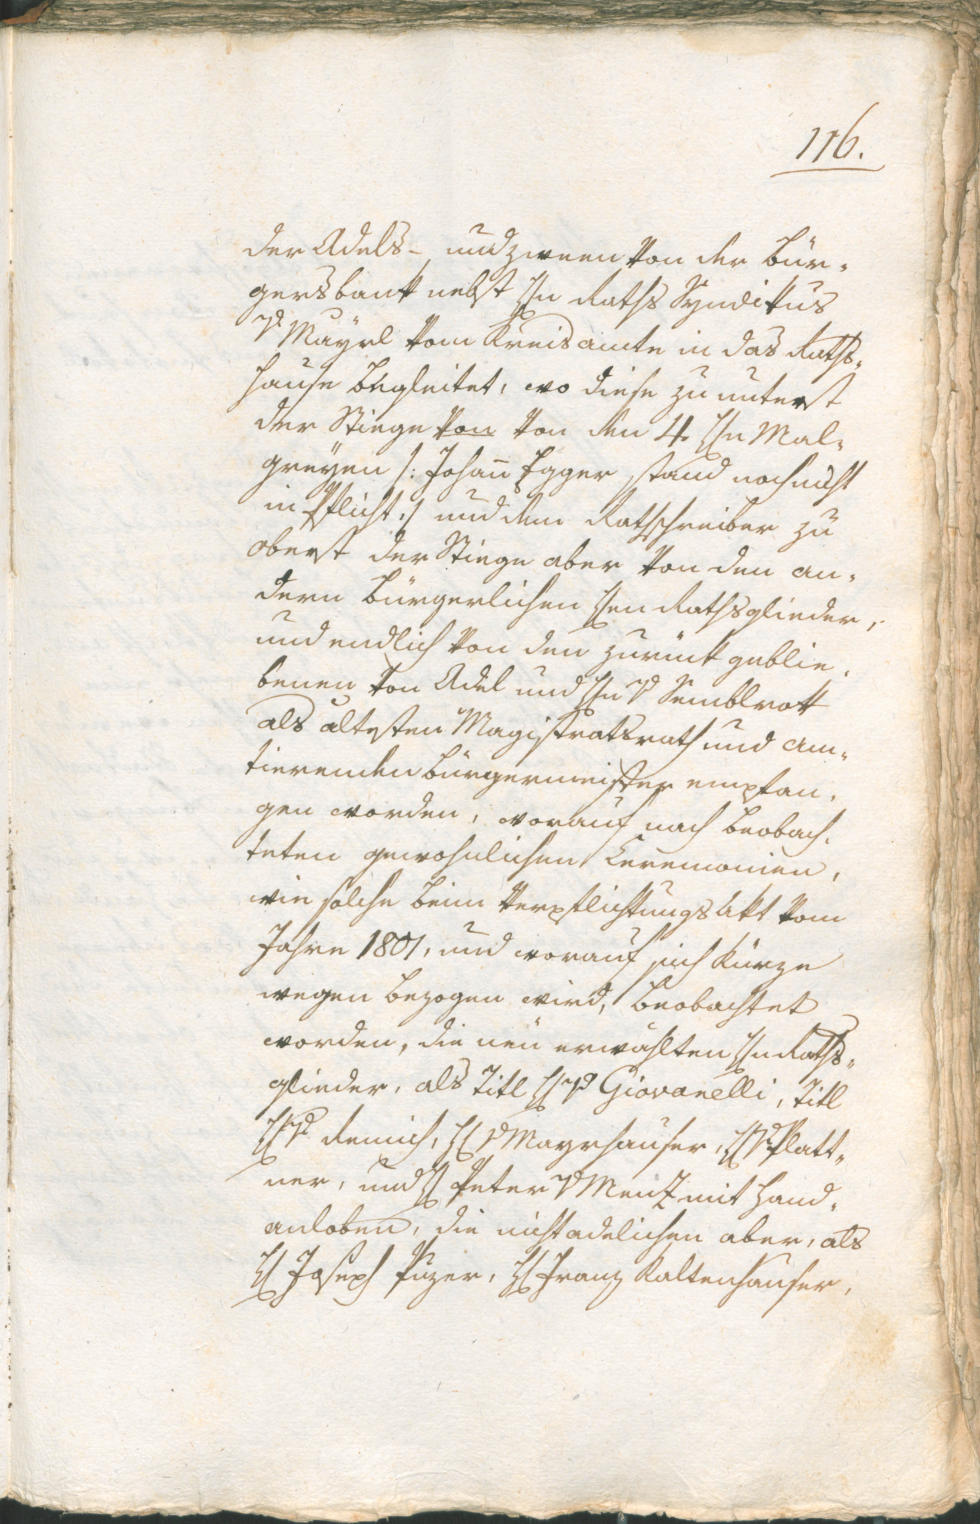 116.
der Adels- und zween von der Bür-
gersbank nebst Hn Raths Syndikus
v Mayrl vom Kreisamte in das Raths-
hause begleitet, wo diese zu unterst
der Stiege von von den 4. Hn Mal-
greyen /: Johann Egger stand noch nicht
in Pflicht :/ und dem Rathschreiber zu
oberst der Stiege aber von den an-
dern bürgerlichen Hen Rathsglieder,
und endlich von den zurück geblie-
benen von Adel und Hn v Semblrokk
als ältesten Magistratsrath und am-
tierenden Bürgermeister empfan-
gen worden, worauf nach beobach-
teten gewohnlichen Ceremonien,
wie solche beim Verpflichtungs Akt vom
Jahre 1801, und worauf sich Kürze
wegen bezogen wird, beobachtet
worden, die neu erwählten Hn Raths-
glieder, als Titl H v Giovanelli, Titl
H v Remich, H v Mayrhauser, H v Platt-
ner, und H Peter v Menz mit Hand-
anloben, die nicht adelichen aber, als
H Joseph Puzer, H Franz Kaltenhauser,